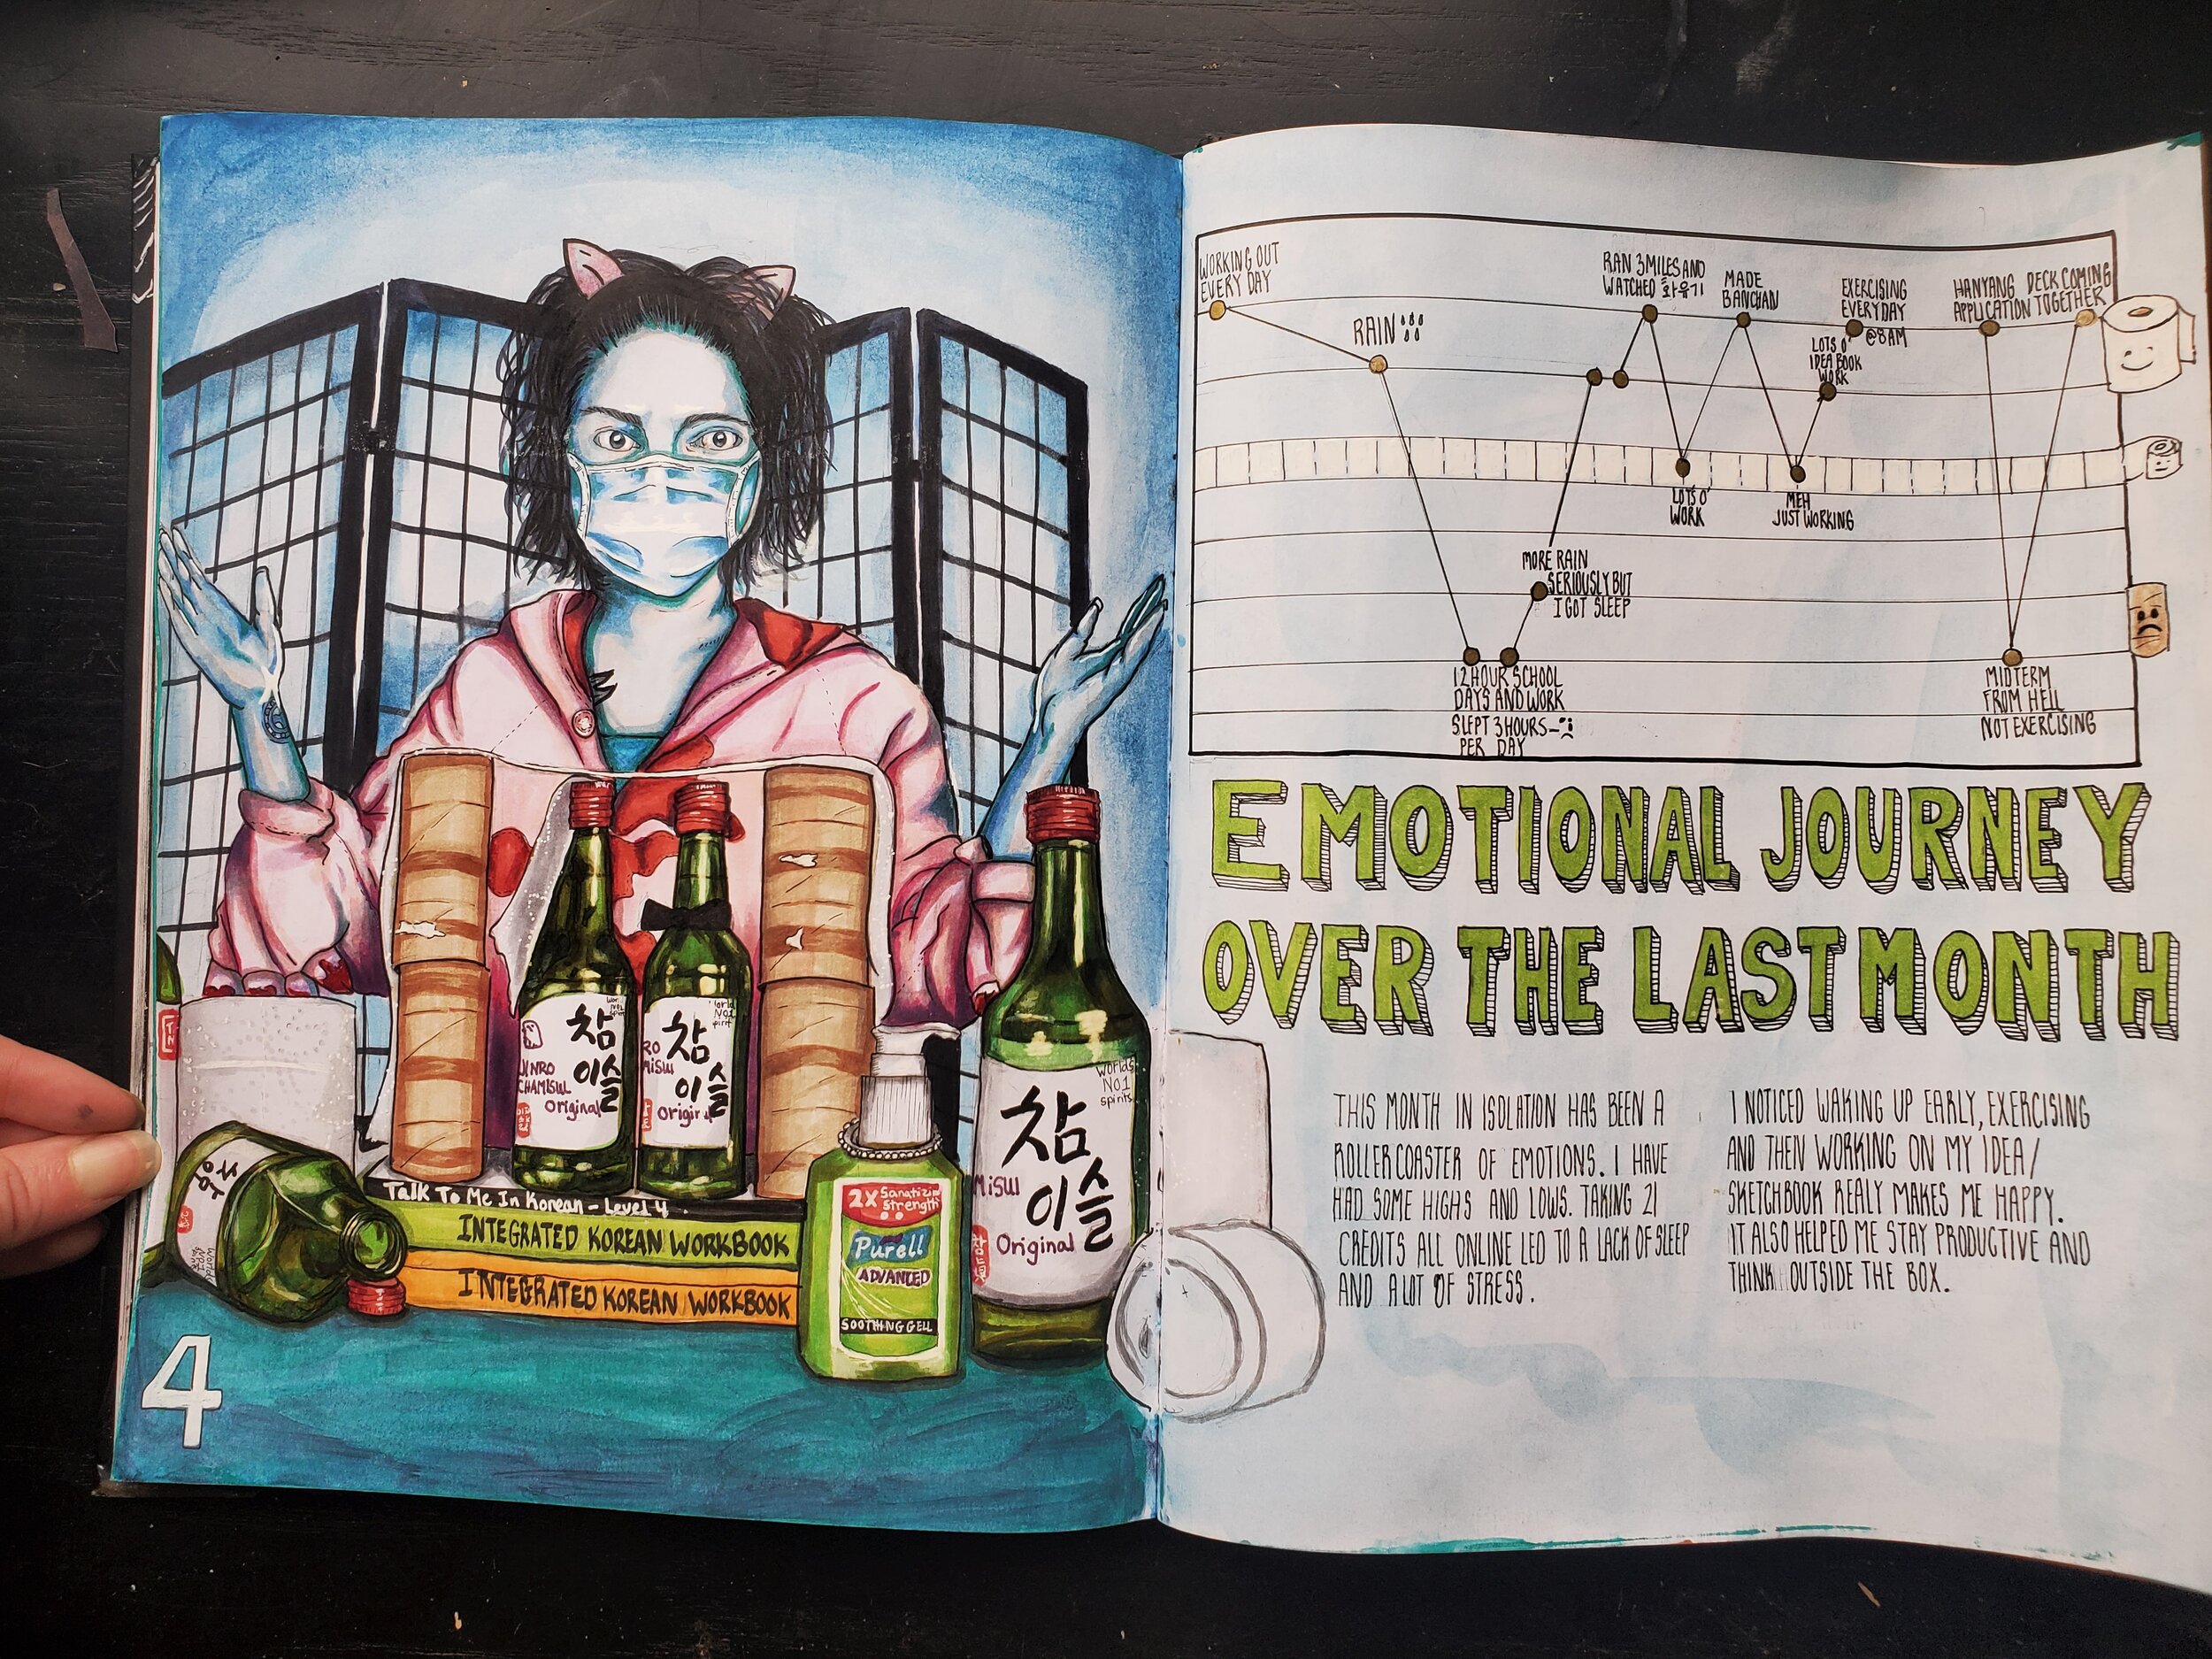 참
이슬
JINRO
CHAMISUL
Original
참
이슬
Original
Talk To Me In Korean - Level 4
INTEGRATED KOREAN WORKBOOK
INTEGRATED KOREAN WORKBOOK
2X Sanatizing
Strength
Purell
ADVANCED
SOOTHING GELL
Worlds
NO1
spirits
참
이슬
Original
4
WORKING OUT
EVERY DAY
RAIN
12 HOUR SCHOOL
DAYS AND WORK
SLEPT 3 HOURS
PER DAY
MORE RAIN
SERIOUSLY BUT
I GOT SLEEP
RAN 3 MILES AND
WATCHED 화유기
LOTS O'
WORK
MADE
BANCHAN
MEH
JUST WORKING
LOTS O'
IDEA BOOK
WORK
EXERCISING
EVERYDAY
@8AM
HANYANG
APPLICATION
MIDTERM
FROM HELL
NOT EXERCISING
DECK COMING
TOGETHER
EMOTIONAL JOURNEY
OVER THE LAST MONTH
THIS MONTH IN ISOLATION HAS BEEN A
ROLLERCOASTER OF EMOTIONS. I HAVE
HAD SOME HIGHS AND LOWS. TAKING 21
CREDITS ALL ONLINE LED TO A LACK OF SLEEP
AND A LOT OF STRESS.
I NOTICED WAKING UP EARLY, EXERCISING
AND THEN WORKING ON MY IDEA/
SKETCHBOOK REALY MAKES ME HAPPY.
IT ALSO HELPED ME STAY PRODUCTIVE AND
THINK OUTSIDE THE BOX.